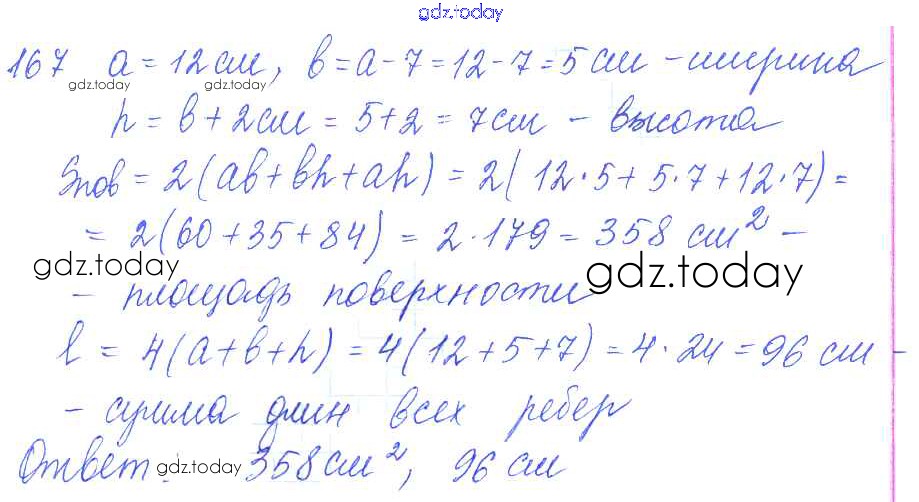 gdz.today
167 a = 12 см, в = a - 7 = 12 - 7 = 5 см - ширина
gdz.today gdz.today
h = в + 2 см = 5 + 2 = 7 см - высота
Sпов = 2 (ав + вh + ah) = 2 ( 12 · 5 + 5 · 7 + 12 · 7) =
= 2 (60 + 35 + 84) = 2 · 179 = 358 см² -
gdz.today gdz.today
- площадь поверхности
l = 4 (a + в + h) = 4 (12 + 5 + 7) = 4 · 24 = 96 см -
- сумма длин всех ребер
Ответ: 358 см², 96 см
gdz.today